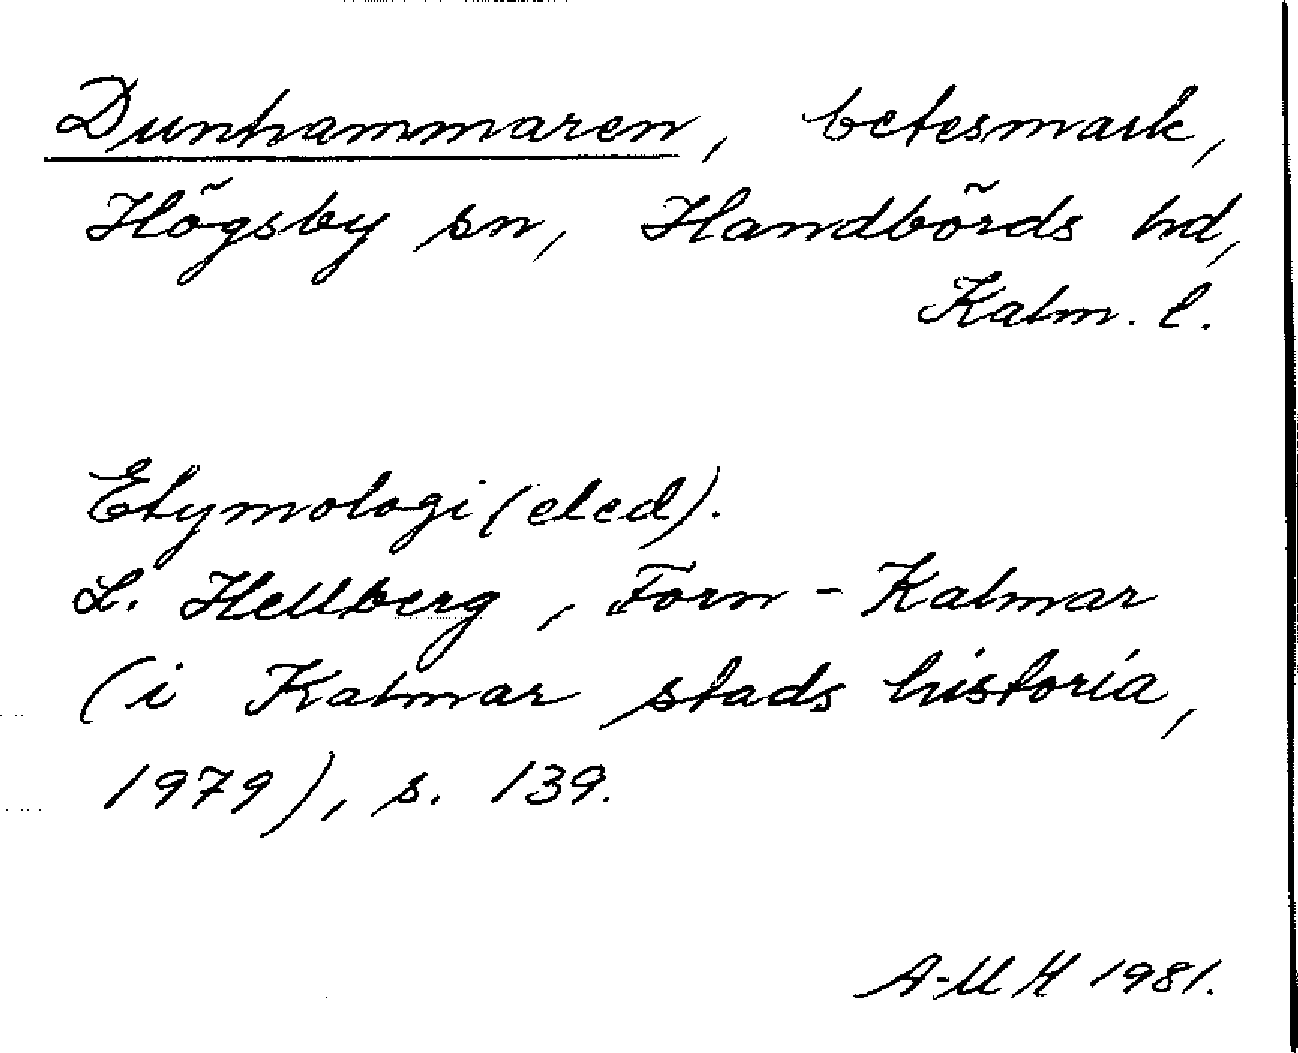 Dunhammaren, betesmark,
Högsby sn, Handbörds hd,
Kalm. l.
Etymologi (eled).
L. Hellberg, Forn-Kalmar
(i Kalmar stads historia,
1979), s. 139.
A-M H 1981.